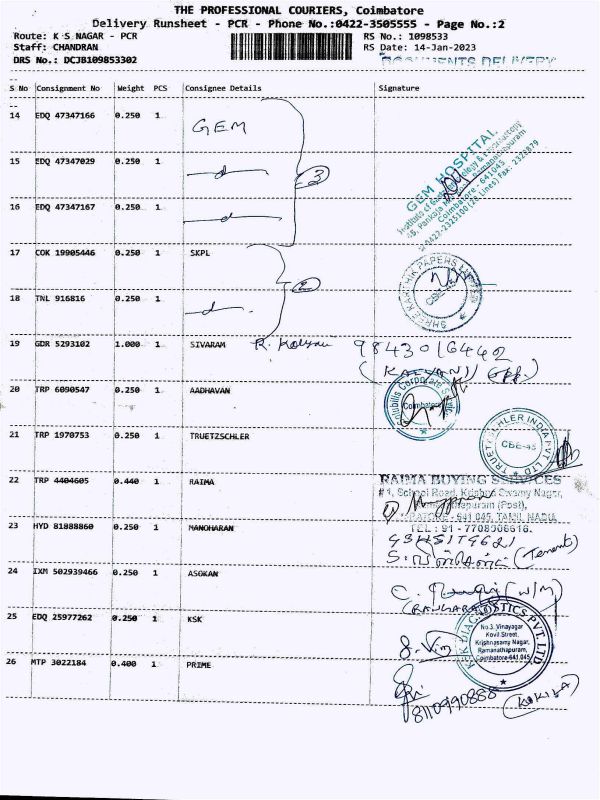 THE PROFESSIONAL COURIERS, Coimbatore
Delivery Runsheet - PCR - Phone No.:0422-3505555 - Page No.:2
Route: K S NAGAR - PCR
RS No.: 1098533
Staff: CHANDRAN
RS Date: 14-Jan-2023
DRS No.: DCJB109853302
DOCUMENTS DELIVERY
S No Consignment No Weight PCS Consignee Details Signature
14 EDQ 47347166 0.250 1 GEM
15 EDQ 47347029 0.250 1
3
16 EDQ 47347167 0.250 1
GEM HOSPITAL
Coimbatore - 641045
17 COK 19905446 0.250 1 SKPL
2
SHREE KARTHIK PAPERS LIMITED
18 TNL 916816 0.250 1
19 GDR 5293102 1.000 1 SIVARAM 9843016442
(KALYANI)
20 TRP 6090547 0.250 1 AADHAVAN
Corporate
Coimbatore
21 TRP 1970753 0.250 1 TRUETZSCHLER
TRUETZSCHLER INDIA PVT LTD
CBE-45
22 TRP 4404605 0.440 1 RAIMA
RAIMA BUYING SERVICES
# 1, School Road, Krishna Swamy Nagar,
(Post),
641 045, TAMIL NADU
TEL : 91 - 7708906616.
23 HYD 81888860 0.250 1 MANOHARAN
(Tenent)
24 IXM 502939466 0.250 1 ASOKAN
(W/M)
25 EDQ 25977262 0.250 1 KSK
DIAGNOSTICS PVT. LTD
No.3, Vinayagar
Kovil Street,
Krishnasamy Nagar,
Ramanathapuram,
Coimbatore-641 045
26 MTP 3022184 0.400 1 PRIME
8110990888
(KOKILA)